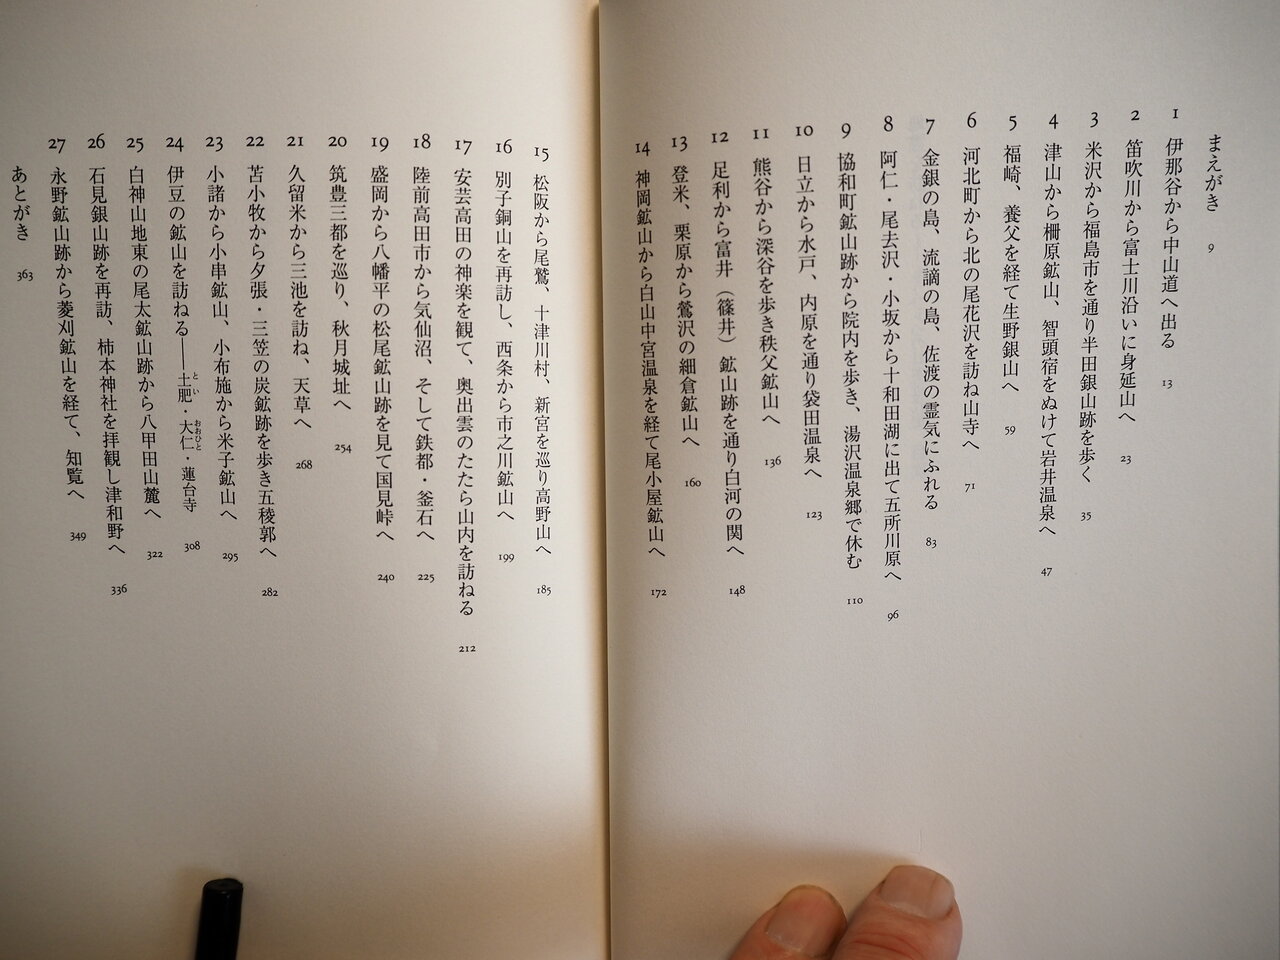 まえがき 9
1 伊那谷から中山道へ出る 13
2 笛吹川から富士川沿いに身延山へ 23
3 米沢から福島市を通り半田銀山跡を歩く 35
4 津山から柵原鉱山、智頭宿をぬけて岩井温泉へ 47
5 福崎、養父を経て生野銀山へ 59
6 河北町から北の尾花沢を訪ね山寺へ 71
7 金銀の島、流謫の島、佐渡の霊気にふれる 83
8 阿仁・尾去沢・小坂から十和田湖に出て五所川原へ 96
9 協和町鉱山跡から院内を歩き、湯沢温泉郷で休む 110
10 日立から水戸、内原を通り袋田温泉へ 123
11 熊谷から深谷を歩き秩父鉱山へ 136
12 足利から富井（篠井）鉱山跡を通り白河の関へ 148
13 登米、栗原から鶯沢の細倉鉱山へ 160
14 神岡鉱山から白山中宮温泉を経て尾小屋鉱山へ 172
15 松阪から尾鷲、十津川村、新宮を巡り高野山へ 185
16 別子銅山を再訪し、西条から市之川鉱山へ 199
17 安芸高田の神楽を観て、奥出雲のたたら山内を訪ねる 212
18 陸前高田市から気仙沼、そして鉄都・釜石へ 225
19 盛岡から八幡平の松尾鉱山跡を見て国見峠へ 240
20 筑豊三都を巡り、秋月城址へ 254
21 久留米から三池を訪ね、天草へ 268
22 苫小牧から夕張・三笠の炭鉱跡を歩き五稜郭へ 282
23 小諸から小串鉱山、小布施から米子鉱山へ 295
24 伊豆の鉱山を訪ねる――土肥・大仁・蓮台寺 308
とい
おおひと
25 白神山地東の尾太鉱山跡から八甲田山麓へ 322
26 石見銀山跡を再訪、柿本神社を拝観し津和野へ 336
27 永野鉱山跡から菱刈鉱山を経て、知覧へ 349
あとがき 363